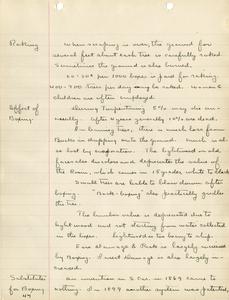 Raking When scraping is over, the ground for
several feet about each tree is carefully raked.
Sometimes the ground is also burned.
per 1000 boxes is paid for raking.
400-700 trees per day may be raked. Women &
children are often employed.
Effect of During Turpentining 5% may die
Boxing. After 4 years generally 10% are dead.
In burning trees, there is much loss from
in dropping onto the ground. much is al-
so lost by evaporation. The lightwood in old
faces also discolors and depreciates the value of
the Rosin, which comes in 18 grades, white to black.
Small trees are liable to blow down after
boxing. "Back-boxing" also practically girdles
the tree.
The lumber value is depreciated due to
lightwood and not starting from water collected
in the boxes. Lightwood is due to boxing.
Fire damage & Risk is largely increased
by Boxing. Insect damage is also largely in-
creased.
Substitutes An invention in S. Car. in 1869 came to
for Boxing nothing. In 1894 another system was patented,
47